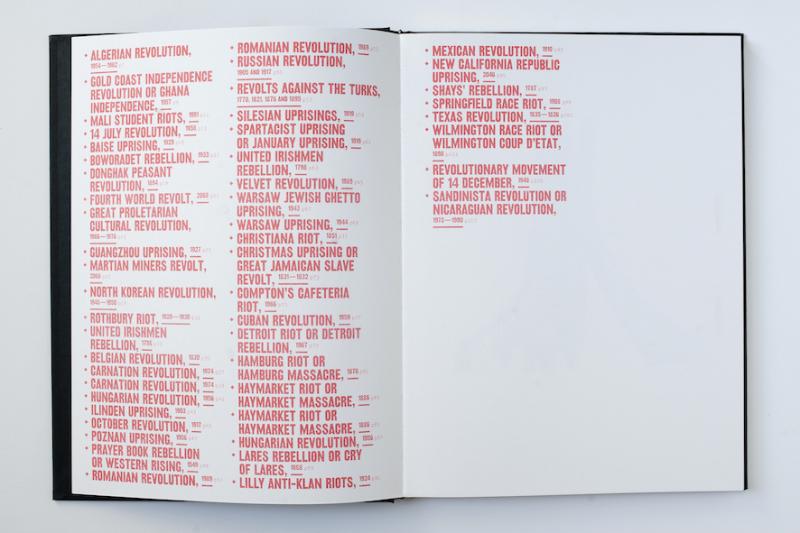 • ALGERIAN REVOLUTION,
1954—1962
• GOLD COAST INDEPENDENCE
REVOLUTION OR GHANA
INDEPENDENCE, 1957
• MALI STUDENT RIOTS, 1991
• 14 JULY REVOLUTION, 1958
• BAISE UPRISING, 1929
• BOWORADET REBELLION, 1933
• DONGHAK PEASANT
REVOLUTION, 1894
• FOURTH WORLD REVOLT,
• GREAT PROLETARIAN
CULTURAL REVOLUTION,
1966—1976
• GUANGZHOU UPRISING, 1927
• MARTIAN MINERS REVOLT,
• NORTH KOREAN REVOLUTION,
1945—1950
• ROTHBURY RIOT,
• UNITED IRISHMEN
REBELLION, 1798
• BELGIAN REVOLUTION, 1830
• CARNATION REVOLUTION, 1974
• CARNATION REVOLUTION, 1974
• HUNGARIAN REVOLUTION, 1956
• ILINDEN UPRISING, 1903
• OCTOBER REVOLUTION, 1917
• POZNAN UPRISING, 1956
• PRAYER BOOK REBELLION
OR WESTERN RISING, 1549
• ROMANIAN REVOLUTION, 1989
• ROMANIAN REVOLUTION, 1989
• RUSSIAN REVOLUTION,
1905 AND 1917
• REVOLTS AGAINST THE TURKS,
1770, 1821, 1876 AND 1895
• SILESIAN UPRISINGS, 1919
• SPARTACIST UPRISING
OR JANUARY UPRISING, 1919
• UNITED IRISHMEN
REBELLION, 1798
• VELVET REVOLUTION, 1989
• WARSAW JEWISH GHETTO
UPRISING, 1943
• WARSAW UPRISING, 1944
• CHRISTIANA RIOT, 1851
• CHRISTMAS UPRISING OR
GREAT JAMAICAN SLAVE
REVOLT, 1831—1832
• COMPTON'S CAFETERIA
RIOT, 1966
• CUBAN REVOLUTION, 1959
• DETROIT RIOT OR DETROIT
REBELLION, 1967
• HAMBURG RIOT OR
HAMBURG MASSACRE, 1876
• HAYMARKET RIOT OR
HAYMARKET MASSACRE, 1886
• HAYMARKET RIOT OR
HAYMARKET MASSACRE, 1886
• HUNGARIAN REVOLUTION, 1956
• LARES REBELLION OR CRY
OF LARES, 1868
• LILLY ANTI-KLAN RIOTS, 1924
• MEXICAN REVOLUTION, 1910
• NEW CALIFORNIA REPUBLIC
UPRISING,
• SHAYS' REBELLION, 1787
• SPRINGFIELD RACE RIOT, 1908
• TEXAS REVOLUTION, 1835—1836
• WILMINGTON RACE RIOT OR
WILMINGTON COUP D'ETAT,
1898
• REVOLUTIONARY MOVEMENT
OF 14 DECEMBER,
• SANDINISTA REVOLUTION OR
NICARAGUAN REVOLUTION,